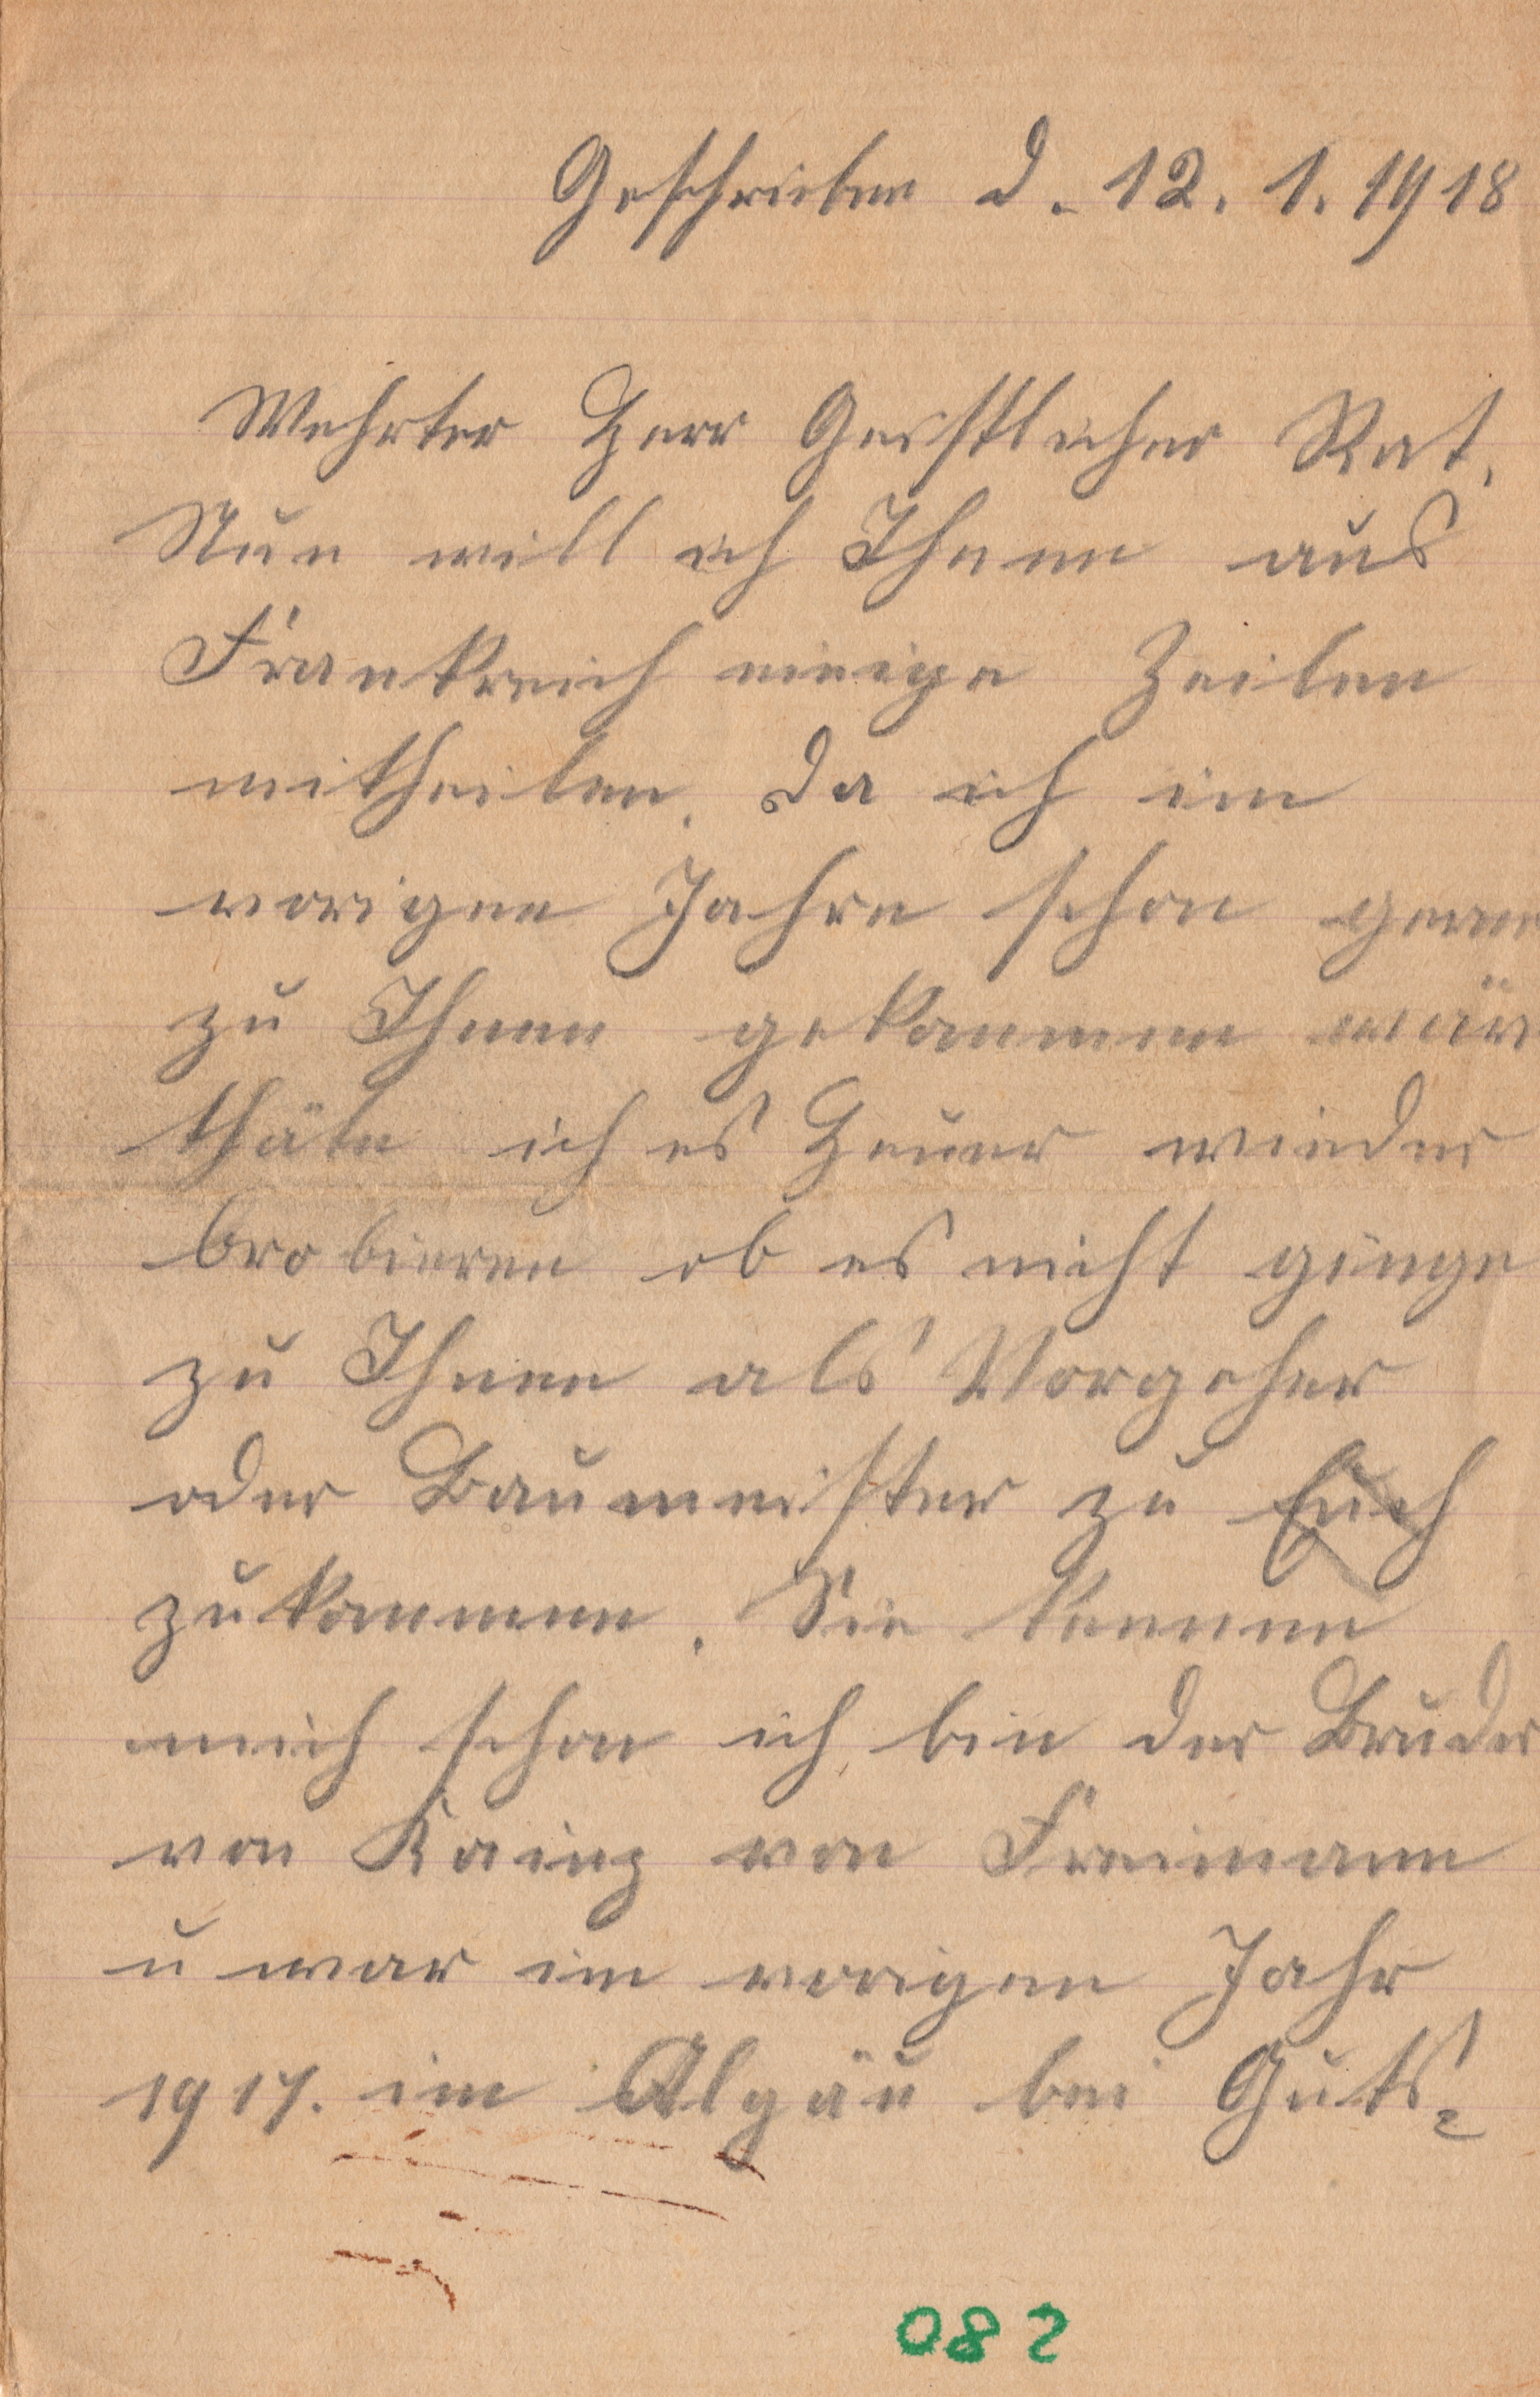 Geschrieben d. 12. 1. 1918
Wehrter Herr Geistlicher Rat.
Nun will ich Ihnen aus
Frankreich einige Zeilen
mitheilen. Da ich im
vorigen Jahre schon gerne
zu Ihnen gekommen wär
thäte ich es Heuer wieder
brobieren ob es nicht ginge
zu Ihnen als Vorgeher
oder Baumeister zu Euch
zukommen. Sie kennen
mich schon ich bin der Bruder
von Kainz von Freimann
u war im vorigen Jahr
1917. im Algäu bei Guts=
082